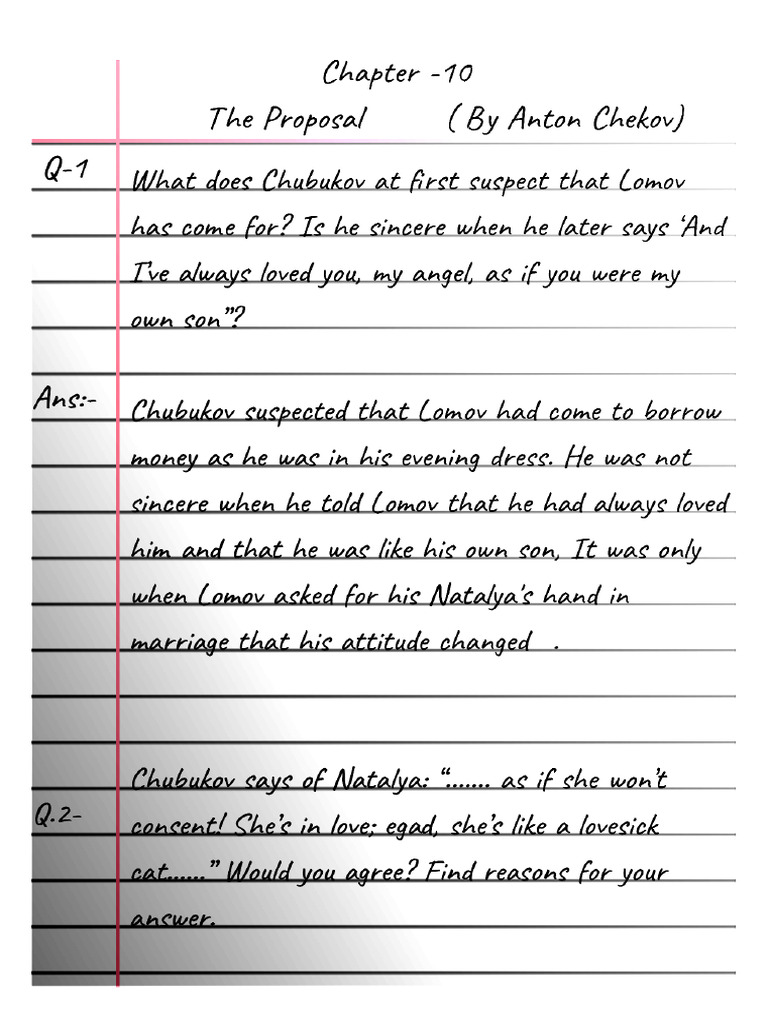 Chapter -10
The Proposal ( By Anton Chekov)
Q-1 What does Chubukov at first suspect that Lomov
has come for? Is he sincere when he later says ‘And
I’ve always loved you, my angel, as if you were my
own son”?
Ans:- Chubukov suspected that Lomov had come to borrow
money as he was in his evening dress. He was not
sincere when he told Lomov that he had always loved
him and that he was like his own son, It was only
when Lomov asked for his Natalya's hand in
marriage that his attitude changed .
Chubukov says of Natalya: “....... as if she won’t
Q.2- consent! She’s in love; egad, she’s like a lovesick
cat......” Would you agree? Find reasons for your
answer.